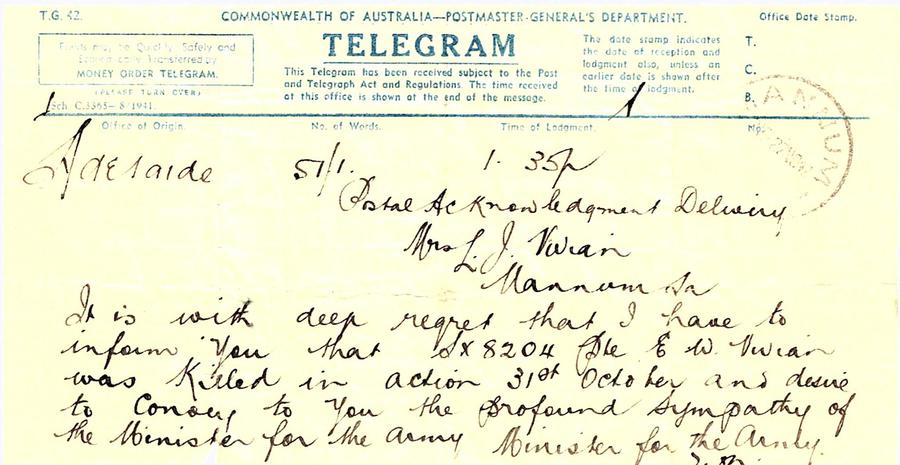 T.G. 42.
COMMONWEALTH OF AUSTRALIA—POSTMASTER-GENERAL'S DEPARTMENT.
Office Date Stamp.
Funds may be Quickly, Safely and
Economically Transferred by
MONEY ORDER TELEGRAM.
(PLEASE TURN OVER)
Sch. C.3363—8/1941.
TELEGRAM
This Telegram has been received subject to the Post
and Telegraph Act and Regulations. The time received
at this office is shown at the end of the message.
The date stamp indicates
the date of reception and
lodgment also, unless an
earlier date is shown after
the time of lodgment.
T.
C.
B.
MANNUM
Office of Origin.
No. of Words.
Time of Lodgment.
No.
Adelaide 51/1. 1.35p
Postal Acknowledgment Delivery
Mrs L. J. Vivian
Mannum Sa
It is with deep regret that I have to
inform You that SX8204 Pte E W. Vivian
was Killed in action 31st October and desire
to Convey to You the profound sympathy of
the Minister for the Army Minister for the Army.